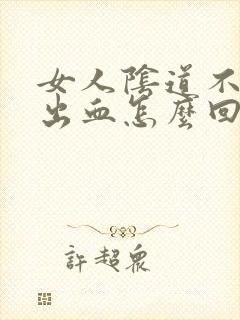 女人陰道不
出血怎麼回
許超眾